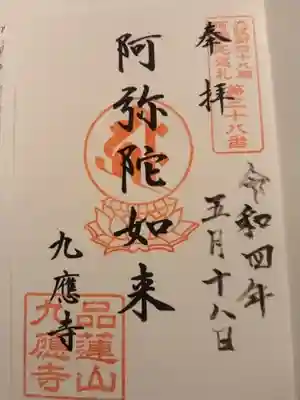 阿弥陀巡礼
第二十八番
奉拝
令和四年
五月十八日
阿弥陀如来
九應寺
品蓮山
九應寺